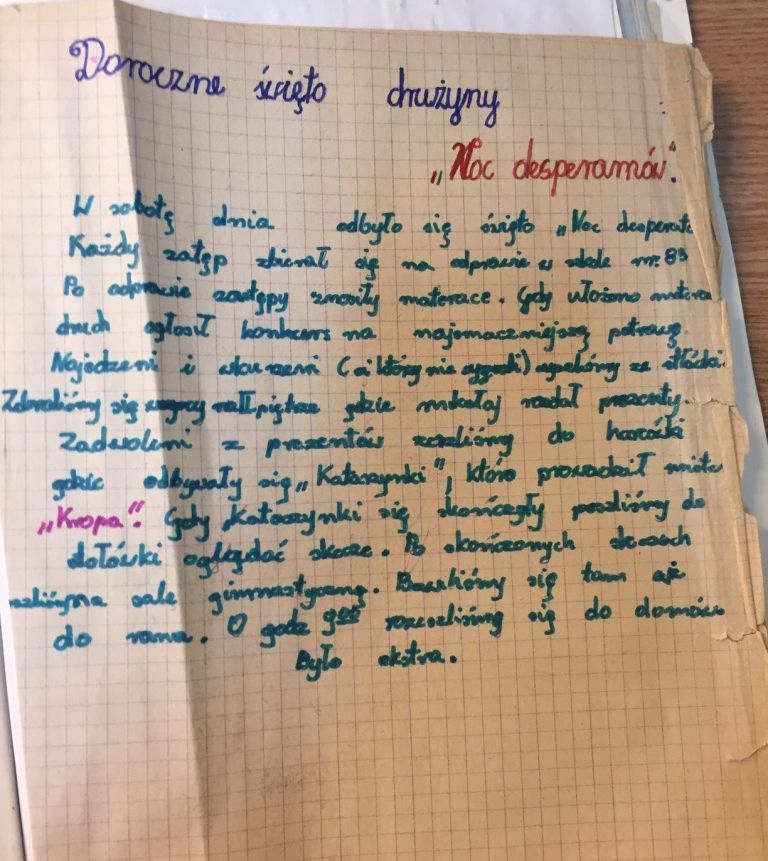 Doroczne święto drużyny
„Noc desperamów".
W sobotę dnia odbyło się święto „Noc desperat
Każdy zatęp zbierał się na odprawie w szkole nr. 83
Po odprawie zastępy znosiły materace. Gdy ułożono matera
druch ogłosił konkurs na najsmaczniejszą potrawę.
Najedzeni i (ci którzy nie) ze
się na II piętrze gdzie mikołaj rozdał prezenty.
Zadwoleni z prezentów zeszliśmy do harcówki
gdzie odbywały się „Katarzynki", które prowadził
„Kropa". Gdy Katarzynki się skończyły poszliśmy do
stołówki oglądać skecze. Po skończonych skeczach
na sale gimnastyczną. Bawiliśmy się tam aż
do rana. O godz 9:00 rozeszliśmy się do domów
Było ekstra.